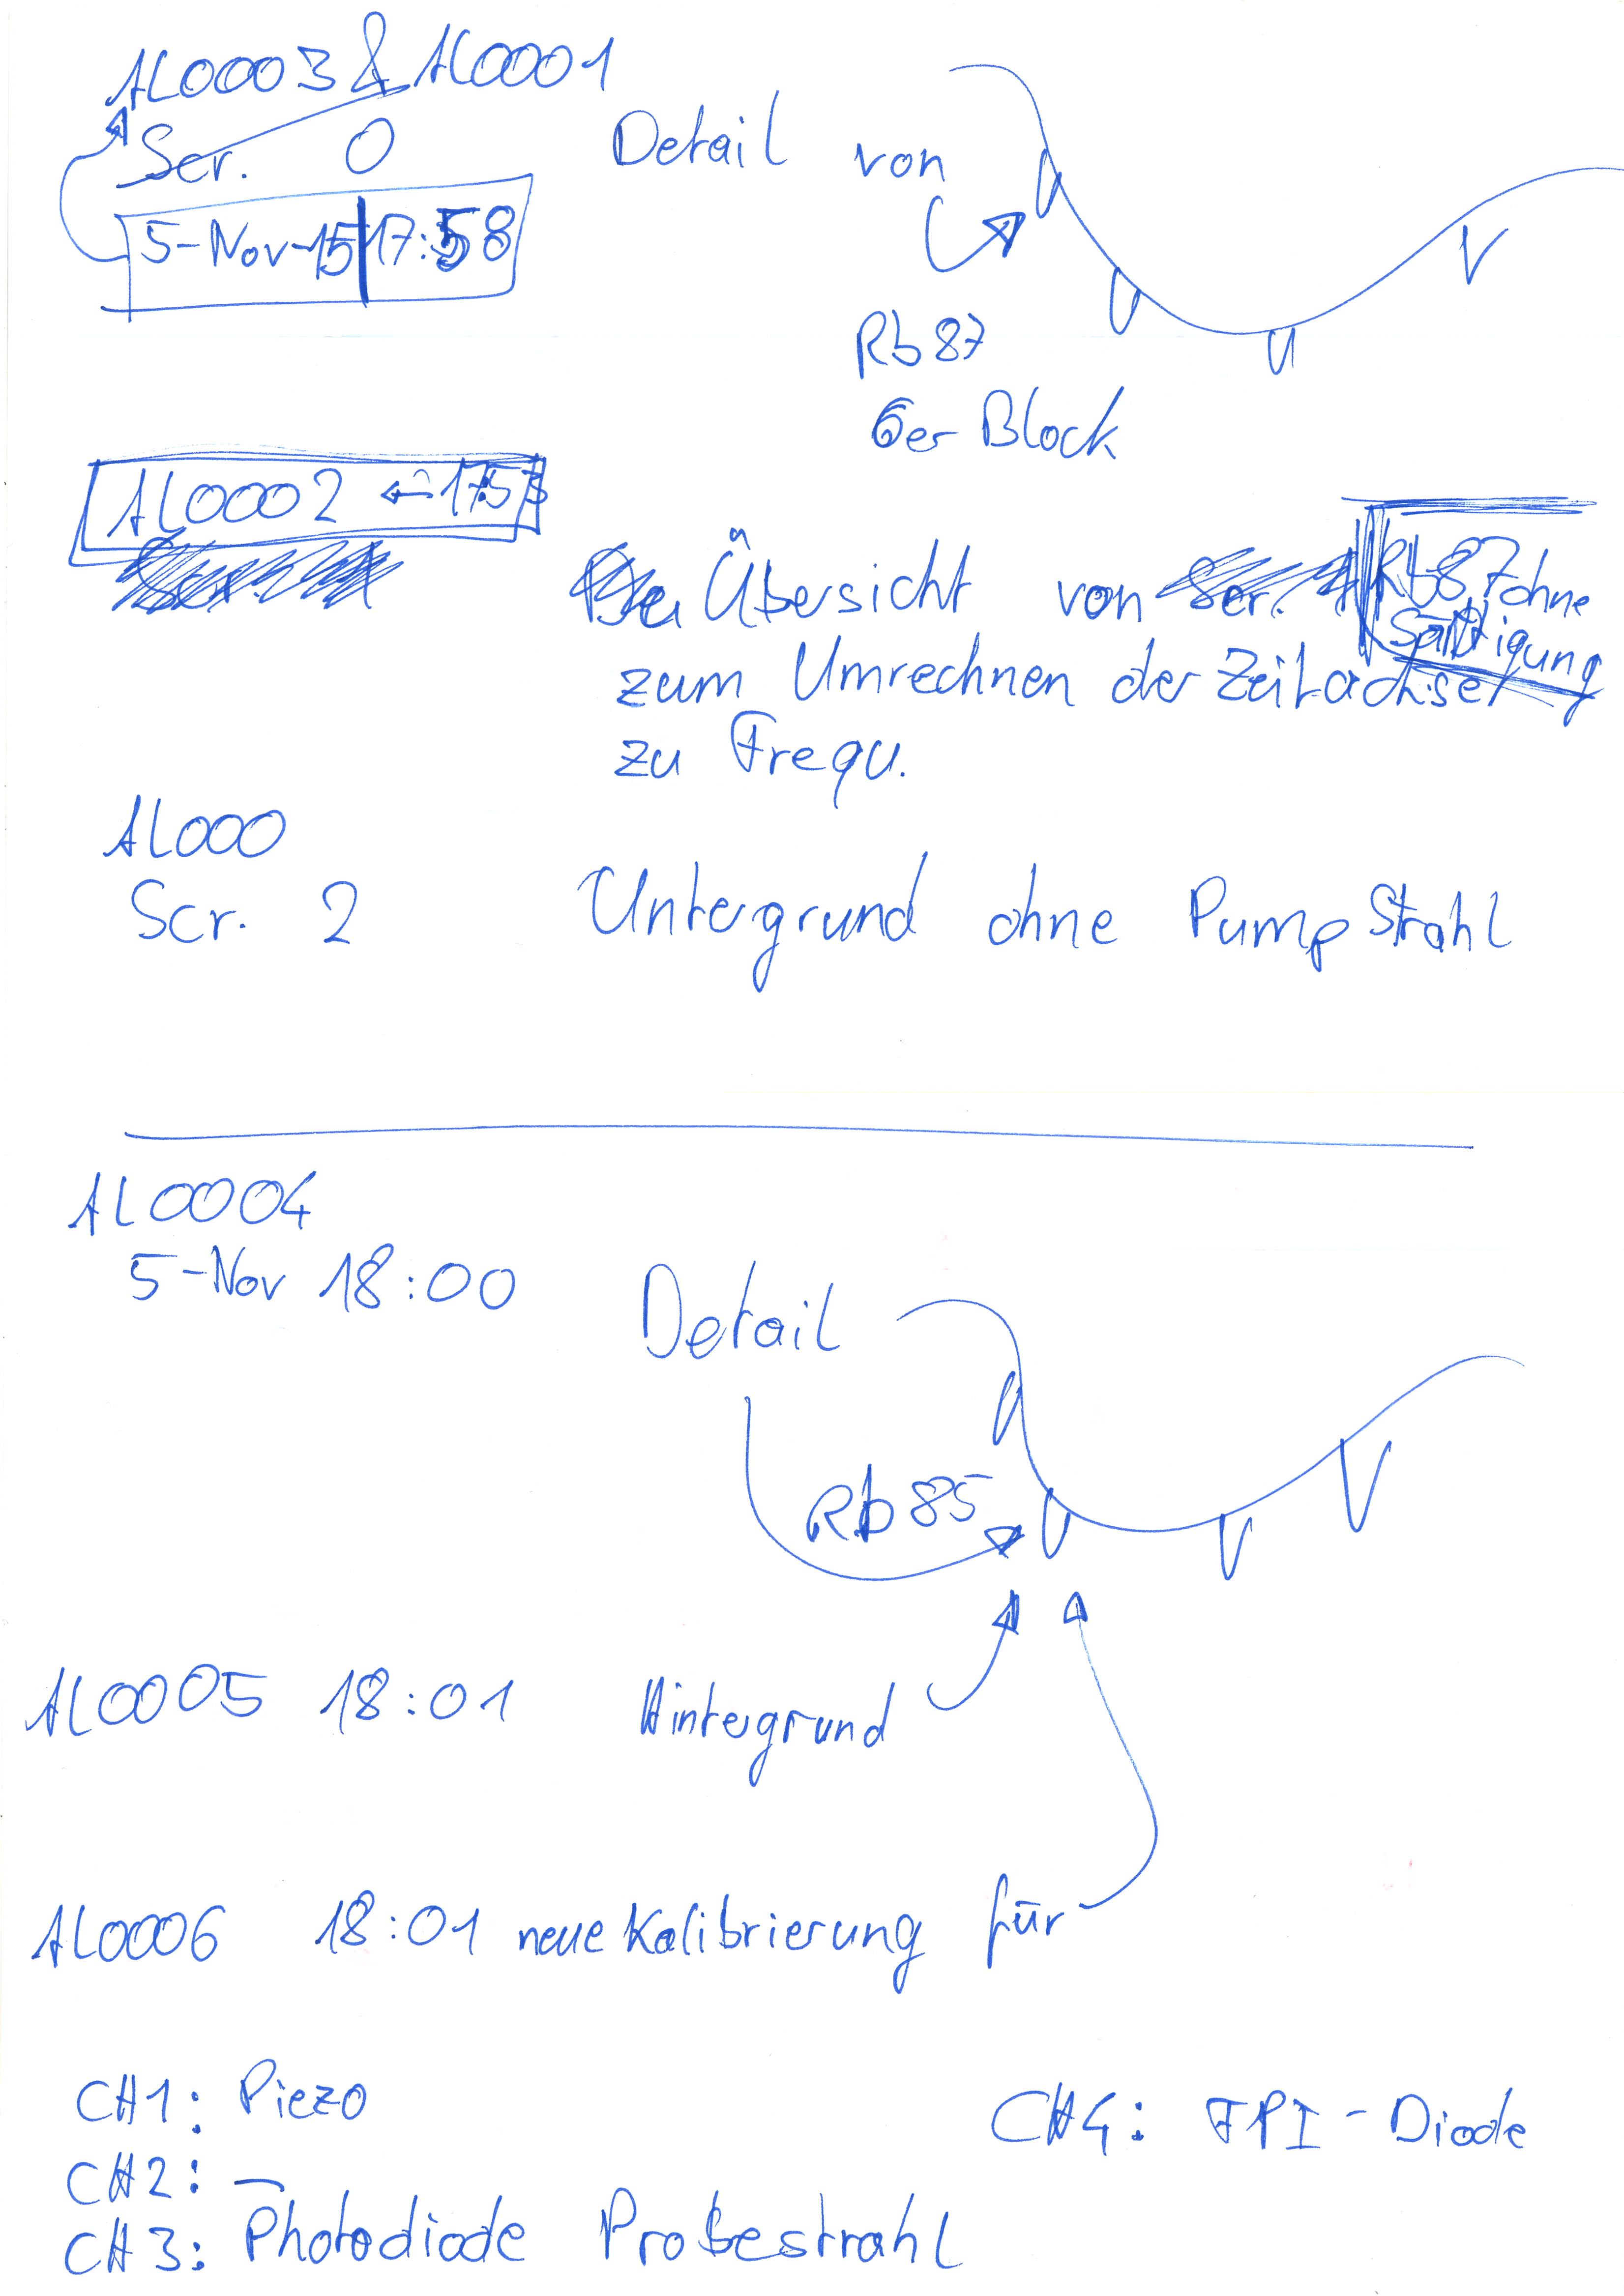 AL0003 & AL0001
Scr. 0
5-Nov-15 17:58
Detail von
Rb 87
6er Block
AL0002 ← 17:53
Übersicht von Rb87 ohne
Sättigung
zum Umrechnen der Zeitachse
zu Frequ.
AL000
Scr. 2 Untergrund ohne Pumpstrahl
AL0004
5-Nov 18:00
Detail
Rb 85
AL0005 18:01 Hintergrund
AL0006 18:01 neue Kalibrierung für
CH1: Piezo
CH2: –
CH3: Photodiode Probestrahl
CH4: FPI-Diode